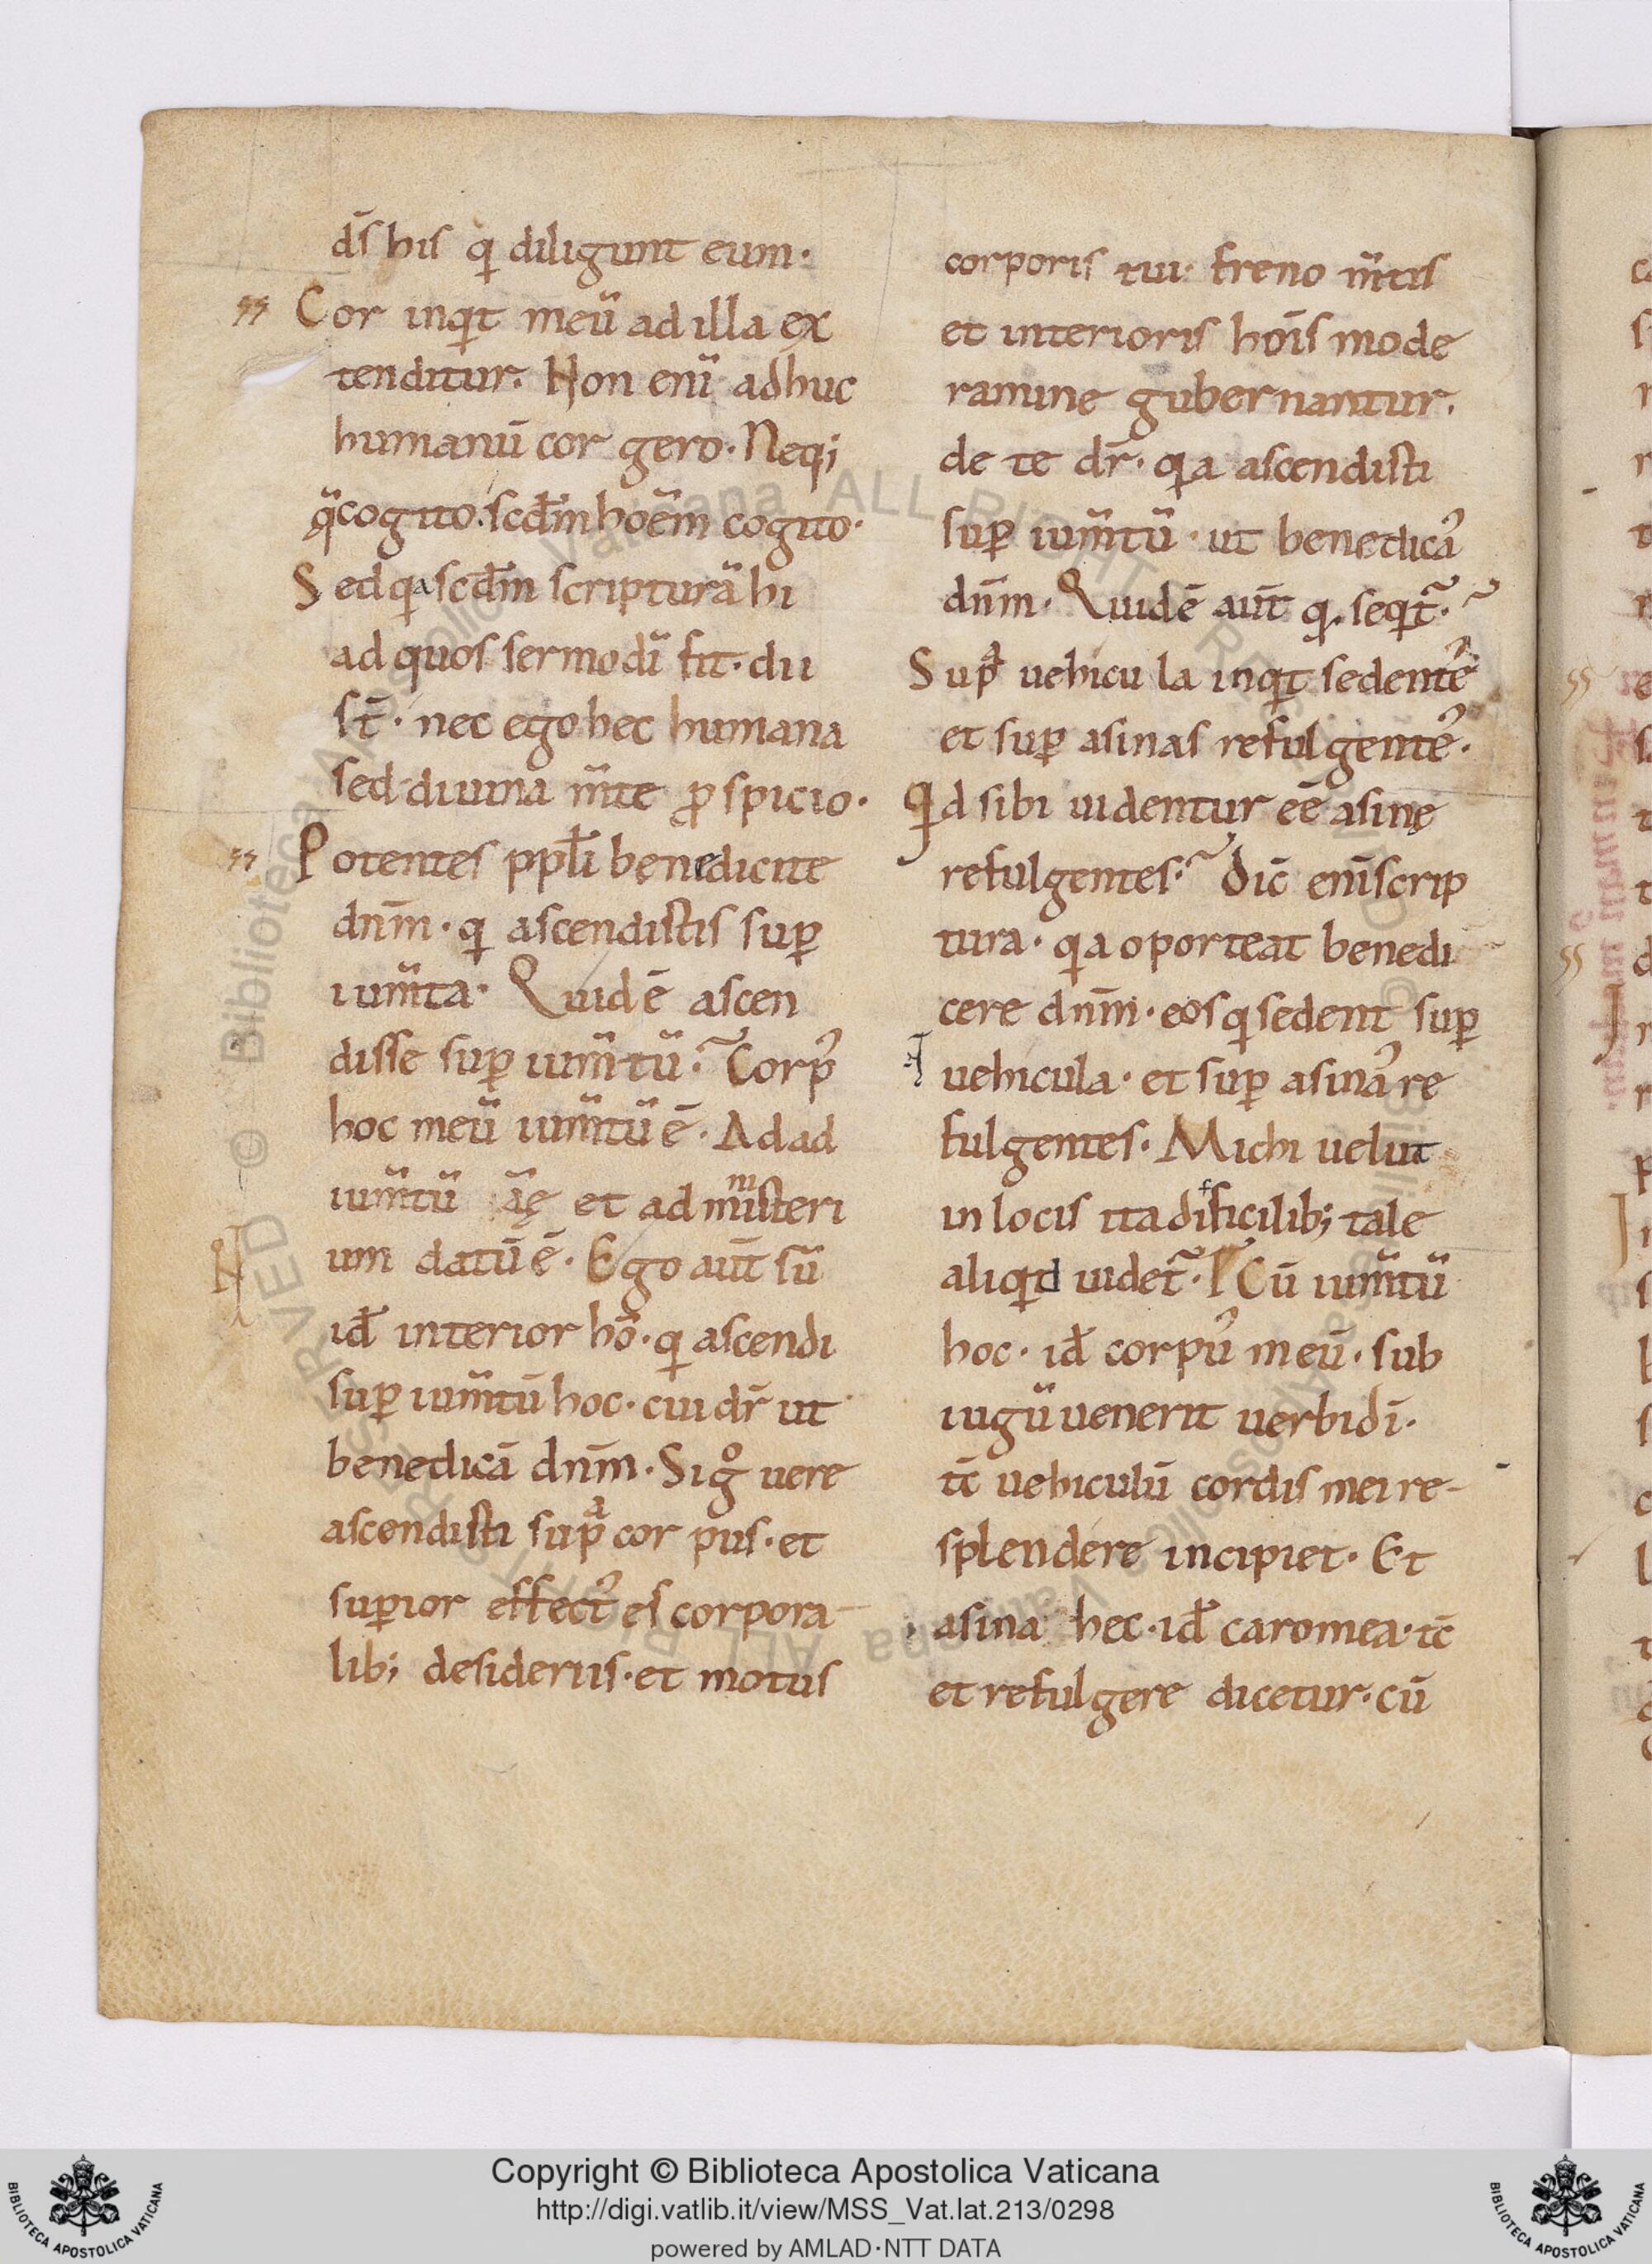 dс̄ his q diligunt eum·
Cor inqͥt meū ad illa ex
tenditur. Non enī adhuc
humanū cor gero. Neq;
q̄ cogito. scdm̄ hoēm cogito·
Sed qͥa scdm̄ scripturā hi
ad quos sermo dī fit. dii
st̄. nec ego hec humana
sed diuina m̄te ꝓspicio.
Potentes ppli benedicite
dnm̄. q ascendistis suꝑ
ium̄ta. Quid ē ascen
disse suꝑ ium̄tū. Corp᾿
hoc meū ium̄tū ē. Ad ad
ium̄tū āę et ad misteri
um datū ē. Ego aut̄ sū
id̄ interior hō. q ascendi
suꝑ ium̄tū hoc. cui dr̄ ut
benedicā dnm̄. Si gͦ uere
ascendisti supᵃ corpus. et
suꝑior effect᾿ es corpora
lib; desideriis. et motus
corporis tui. freno m̄tis
et interioris hoīs mode
ramine gubernantur.
de te dr̄. qͥa ascendisti
suꝑ ium̄tū. ut benedicā᾿
dnm̄. Quid ē aut̄ q. seqͥt᷑.
Supᵃ uehicula inqͥt sedentē᾿
et suꝑ asinas refulgentē᾿.
Qͥd sibi uidentur eē asinę
refulgentes. Dic̄ enī scrip
tura. qͥa oporteat benedi
cere dnm̄. eos q sedent suꝑ
uehicula. et suꝑ asinā᾿ re
fulgentes. Michi uelut
in locis ita dificilib; tale
aliqͥd uidet᷑. Cū ium̄tū
hoc. id̄ corpu᾿ meū. sub
iugū uenerit uerbi dī.
tc̄ uehiculū cordis mei re-
splendere incipiet. Et
asina hec. id̄ caro mea. tc̄
et refulgere dicetur. cū
Copyright © Biblioteca Apostolica Vaticana
http://digi.vatlib.it/view/MSS_Vat.lat.213/0298
powered by AMLAD·NTT DATA
BIBLIOTECA APOSTOLICA VATICANA
BIBLIOTECA APOSTOLICA VATICANA